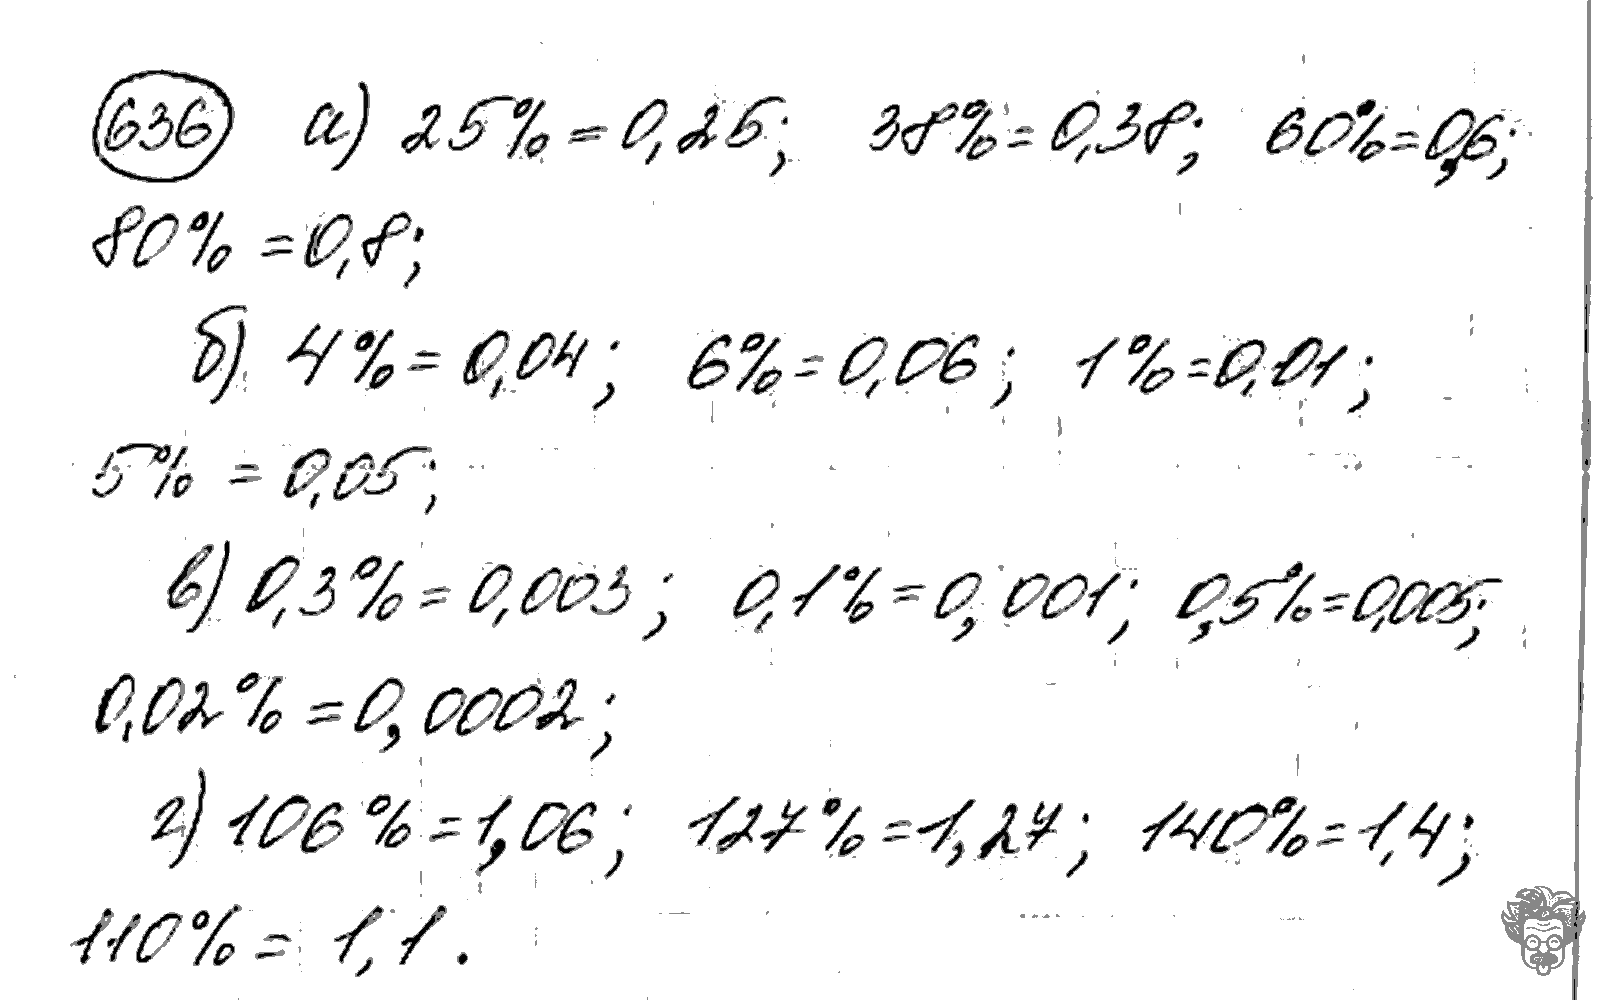 636 а) 25% = 0,25; 38% = 0,38; 60% = 0,6;
80% = 0,8;
б) 4% = 0,04; 6% = 0,06; 1% = 0,01;
5% = 0,05;
в) 0,3% = 0,003; 0,1% = 0,001; 0,5% = 0,005;
0,02% = 0,0002;
г) 106% = 1,06; 127% = 1,27; 140% = 1,4;
110% = 1,1.